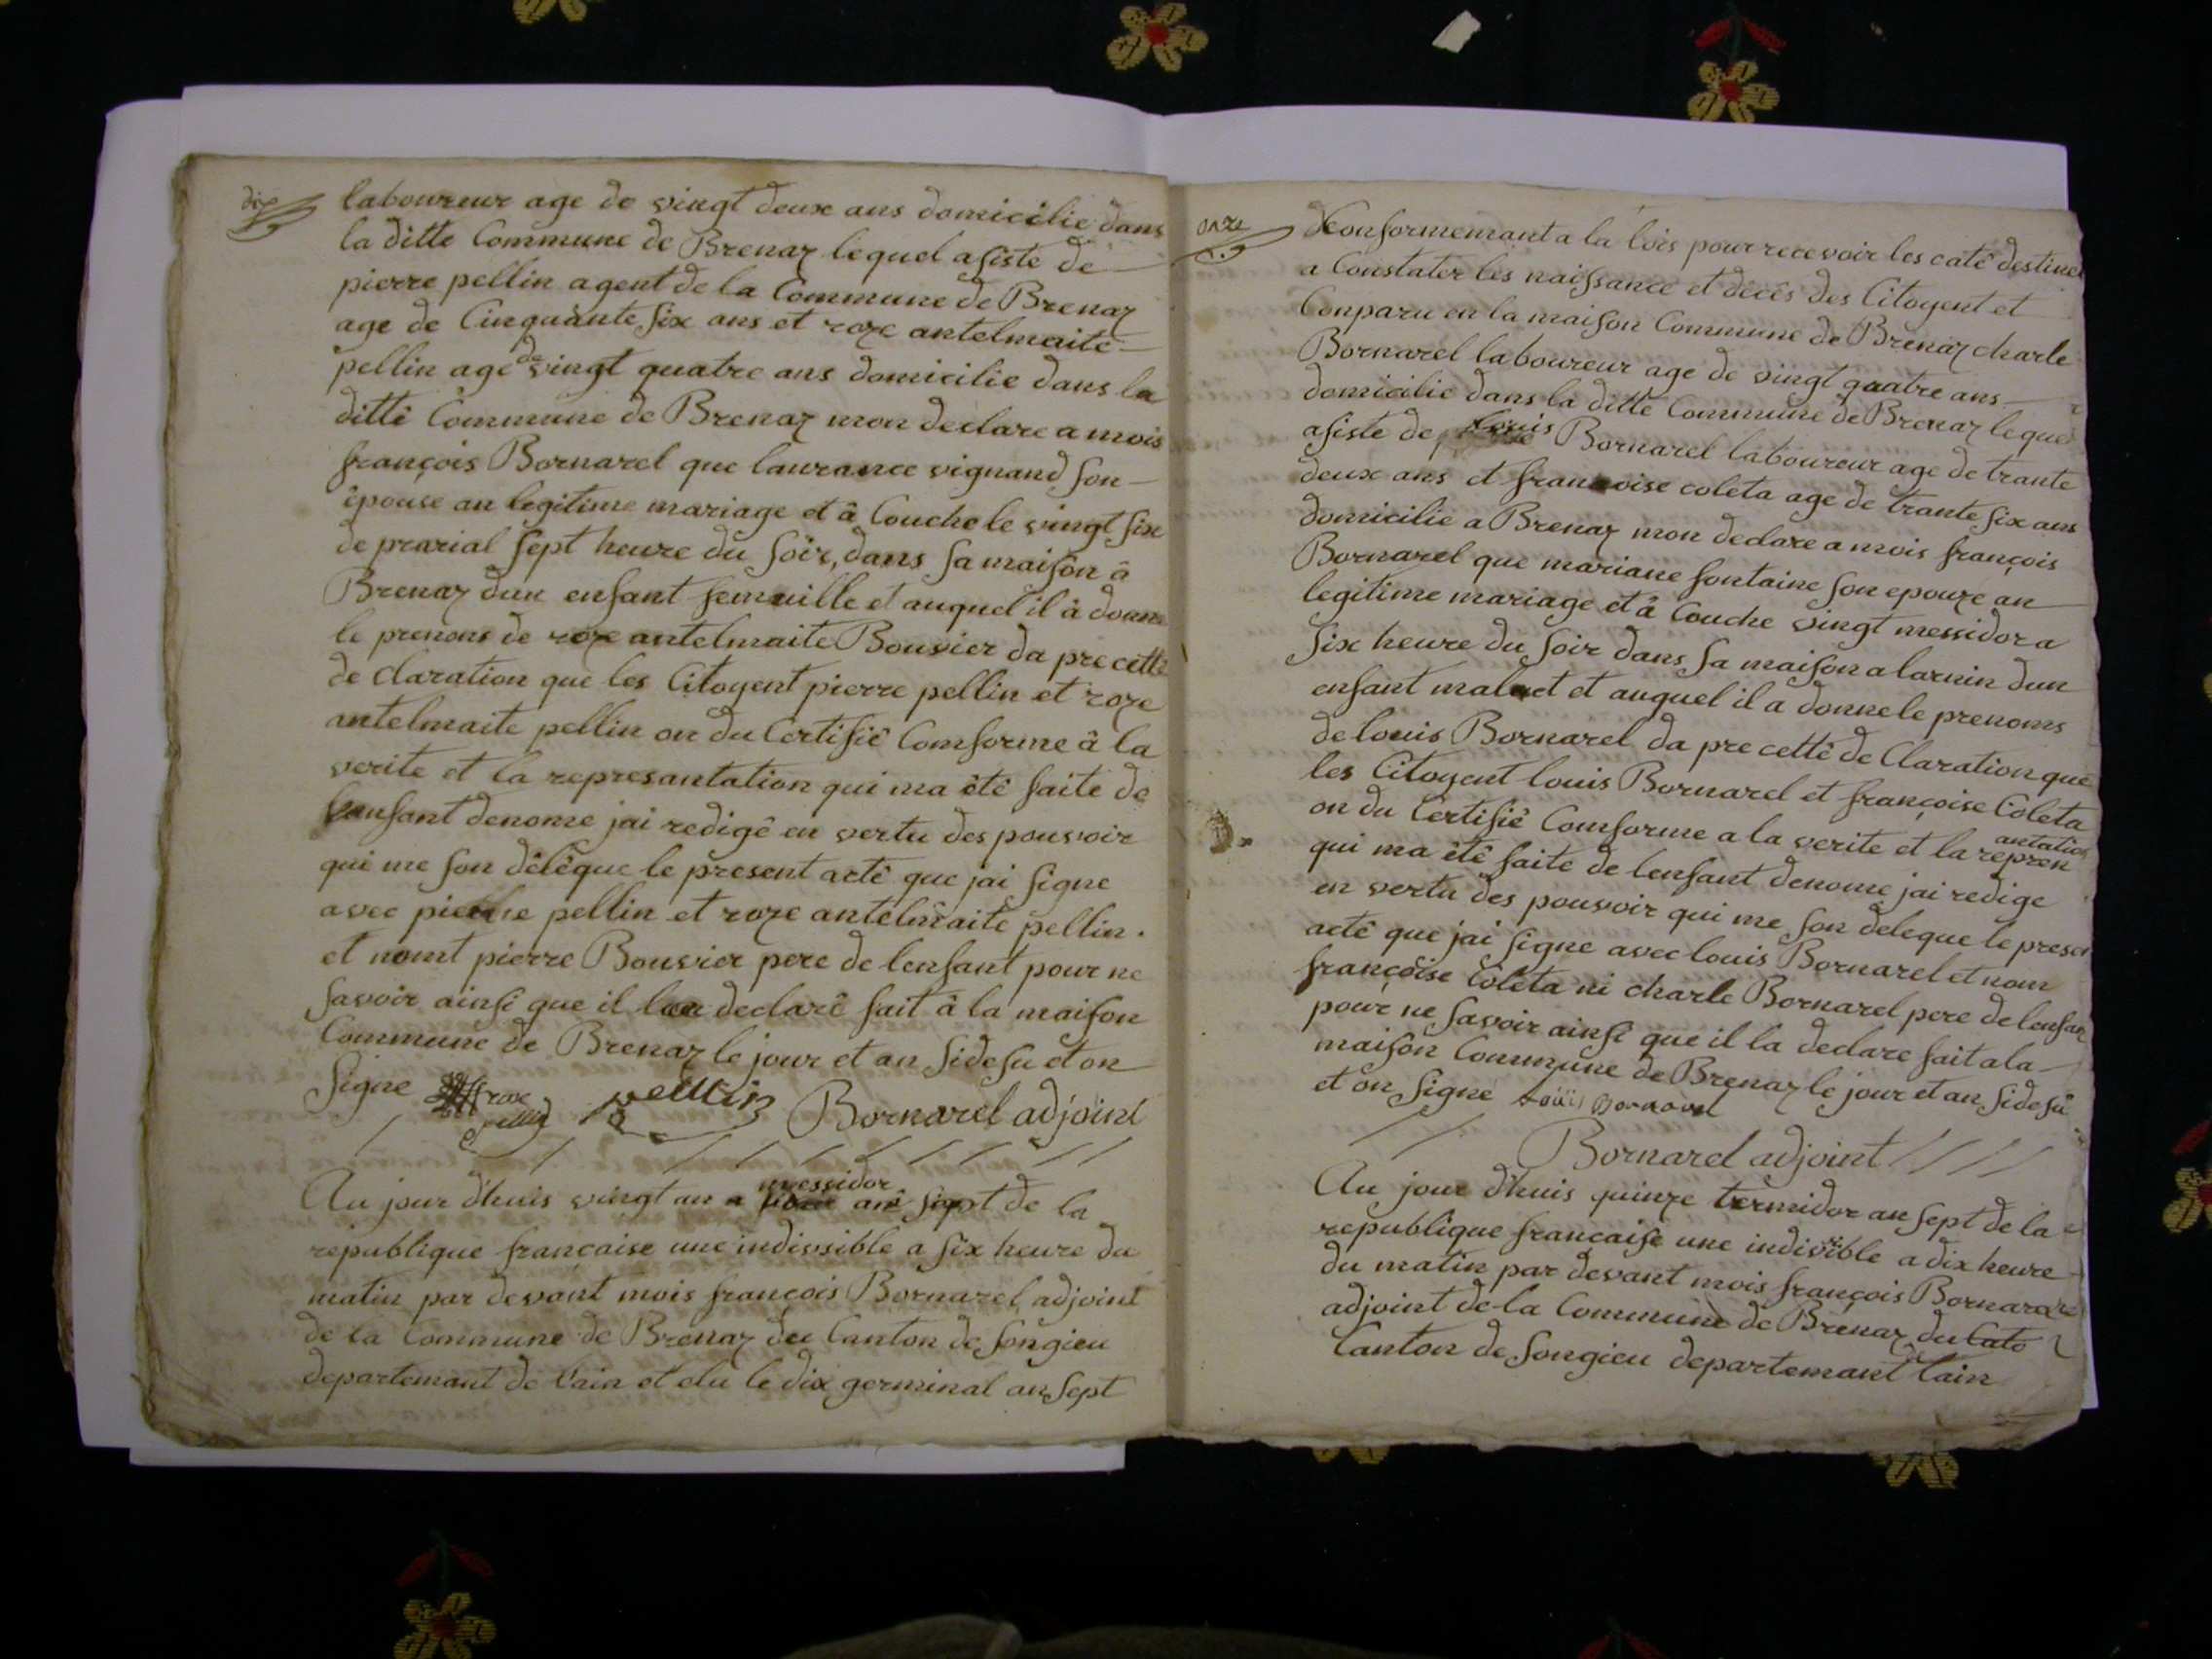 dix
laboureur age de vingt deux ans domicilie dans
la ditte Commune de Brenaz lequel asiste de
pierre pellin agent de la Commune de Brenaz
age de Cinquante six ans et roze antelmaite
pellin age de vingt quatre ans domicilie dans la
ditte Commune de Brenaz mon declare a mois
françois Bornarel que laurance vignand son
épouse an legitime mariage et â Couche le vingt six
de prarial sept heure du soir, dans sa maison â
Brenaz dun enfant femaille et auquel il â donne
le prenoms de roze antelmaite Bouvier da pre cette
de claration que les Citoyent pierre pellin et roze
antelmaite pellin on du Certifié Comforme â la
verite et la represantation qui ma été faite de
lenfant denome jai redigé en vertu des pouvoir
qui me son déléque le present acté que jai signe
avec pierre pellin et roze antelmaite pellin.
et nomt pierre Bouvier pere de lenfant pour ne
savoir ainsi que il la declaré fait â la maison
Commune de Brenaz le jour et an sidesu et on
signe roze pellin pellin Bornarel adjoint
Au jour d'huis vingt un messidor an sept de la
republique française une indivsible a six heure du
matin par devant mois françois Bornarel adjoint
de la Commune de Brenaz du Canton de songieu
departemant de l'ain et elu le dix germinal an sept
onze
Conformemant a la lois pour recevoir les caté destine
a Constater les naissance et decès des Citoyent et
Conparu en la maison Commune de Brenaz charle
Bornarel laboureur age de vingt quatre ans
domicilie dans la ditte Commune de Brenaz leque
asiste de louis Bornarel laboureur age de trante
deux ans et françoise coleta age de trante six ans
domicilie a Brenaz mon declare a mois françois
Bornarel que mariane fontaine son epouze an
legitime mariage et â Couche vingt messidor a
six heure du soir dans sa maison a larnin dun
enfant malet et auquel il a donne le prenoms
de louis Bornarel da pre cetté de Claration que
les Citoyent louis Bornarel et françoise Coleta
on du Certifié Comforme a la verite et la repren antation
qui ma été faite de lenfant denome jai redige
en vertu des pouvoir qui me son deleque le presen
acté que jai signe avec louis Bornarel et nom
françoise Coleta ni charle Bornarel pere de lenfan
pour ne savoir ainsi que il la declare fait a la
maison Commune de Brenaz le jour et an sidesu
et on signe Louis Bornarel
Bornarel adjoint
Au jour d'huis quinze termidor an sept de la
republique francaise une indivible a dix heure
du matin par devant mois françois Bornarel
adjoint de la Commune de Brenaz du Cato
Canton de songieu departemant de lain